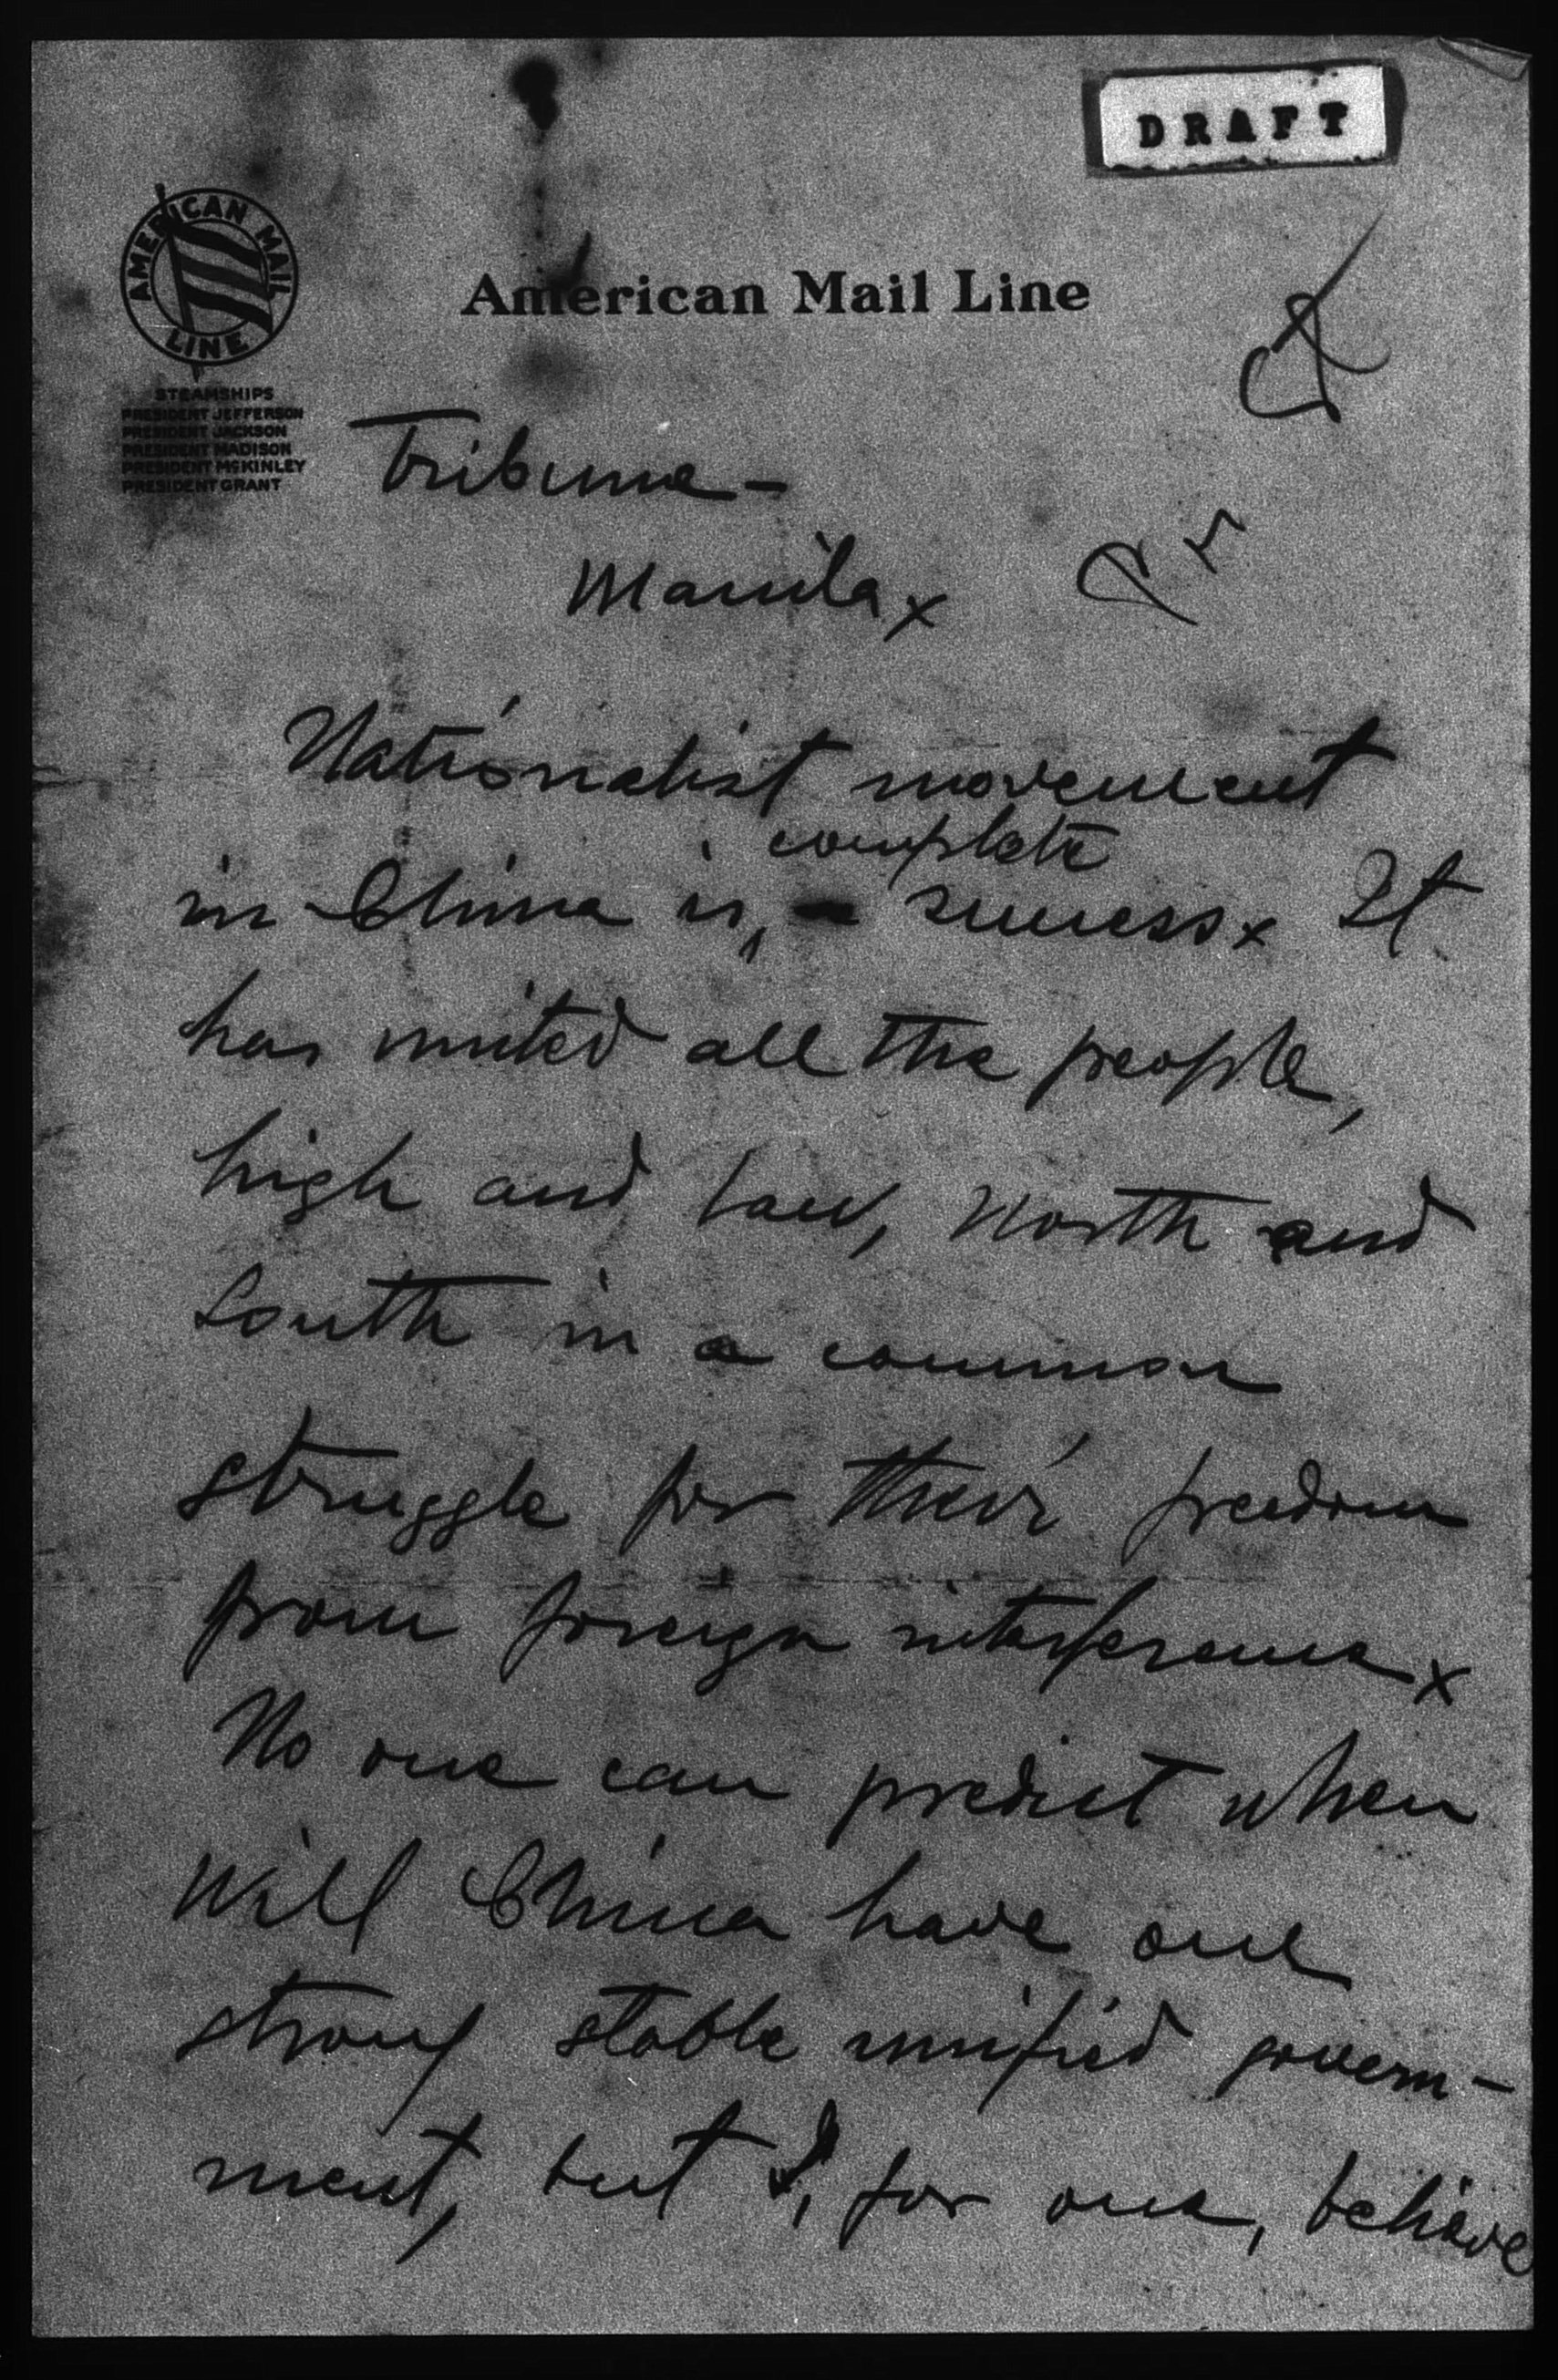 DRAFT
AMERICAN MAIL LINE
American Mail Line
STEAMSHIPS
PRESIDENT JEFFERSON
PRESIDENT JACKSON
PRESIDENT MADISON
PRESIDENT McKINLEY
PRESIDENT GRANT
Tribune -
Manila x
Nationalist movement
complete
in China is, success x It
has united all the people,
high and low, North and
South in a common
struggle for their freedom
from foreign interference x
No one can predict when
will China have one
strong stable unified govern-
ment, but I, for one, believe